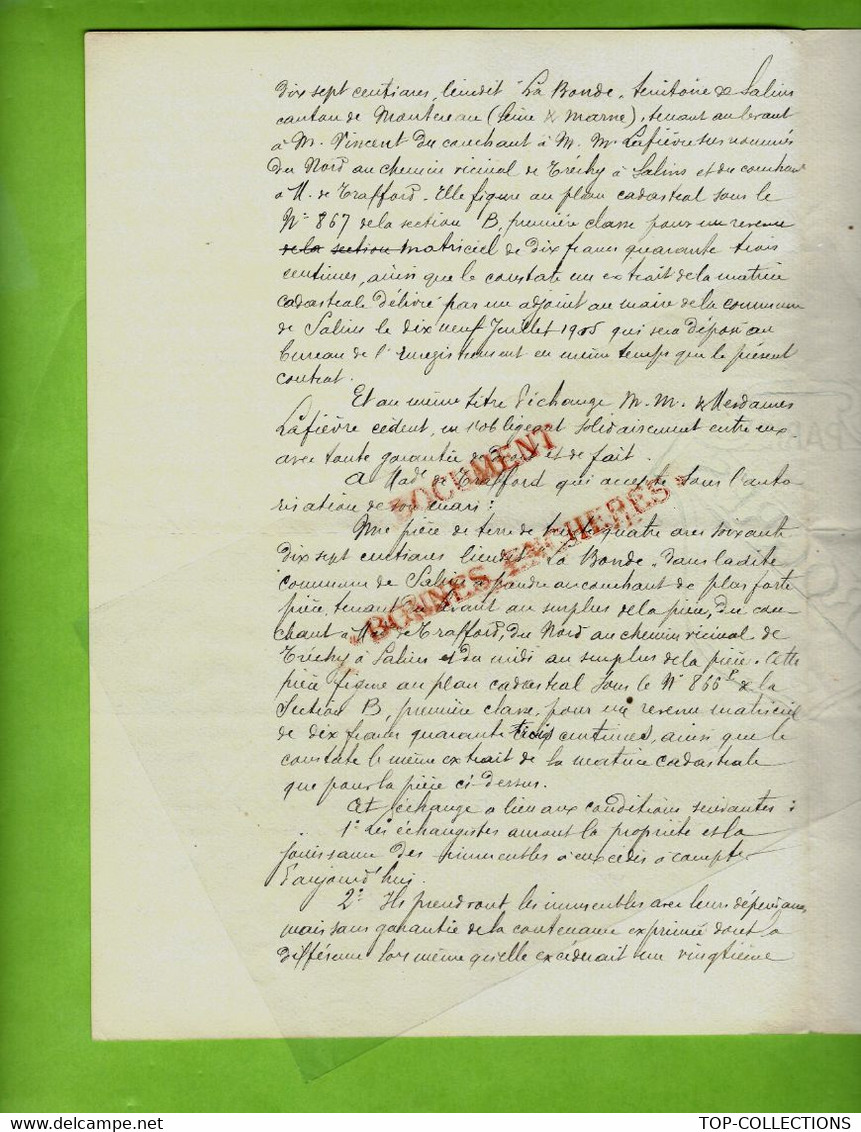 dix sept centiares, lieudit "La Bonde, territoire de Salins
canton de Montereau (Seine & Marne), tenant au levant
à M. Vincent du couchant à M. M. Lafièvre sus nommés
du Nord au chemin vicinal de Tréchy à Salins et du couchant
à M. de Trafford. Elle figure au plan cadastral sous le
N° 867 de la section B, première classe pour un revenu
de la section matriciel de dix francs quarante trois
centimes, ainsi que le constate un extrait de la matrice
cadastrale délivré par un adjoint au maire de la commune
de Salins le dix neuf Juillet 1905 qui sera déposé au
bureau de l'Enregistrement en même temps que le présent
contrat.
Et au même titre d'échange M. M. & Mesdames
Lafièvre cèdent, en s'obligeant solidairement entre eux
avec toute garantie de droit et de fait.
A Made de Trafford qui accepte sous l'auto
risation de son mari :
Une pièce de terre de trente quatre ares soixante
dix sept centiares lieudit "La Bonde" dans ladite
commune de Salins à prendre au couchant de plus forte
pièce, tenant du levant au surplus de la pièce, du cou-
chant à M. de Trafford, du Nord au chemin vicinal de
Tréchy à Salins et du midi au surplus de la pièce. Cette
pièce figure au plan cadastral sous le N° 866 P de la
Section B, première classe, pour un revenu matriciel
de dix francs quarante trois centimes, ainsi que le
constate le même extrait de la matrice cadastrale
que pour la pièce ci-dessus.
Cet échange a lieu aux conditions suivantes :
1° Les échangistes auront la propriété et la
jouissance des immeubles à eux cédés à compter
d'aujourd'hui.
2° Ils prendront les immeubles avec leurs dépendances
mais sans garantie de la contenance exprimée dont la
différence lors même qu'elle excéderait un vingtième
DOCUMENT
"BONNES ENCHERES"
TOP-COLLECTIONS